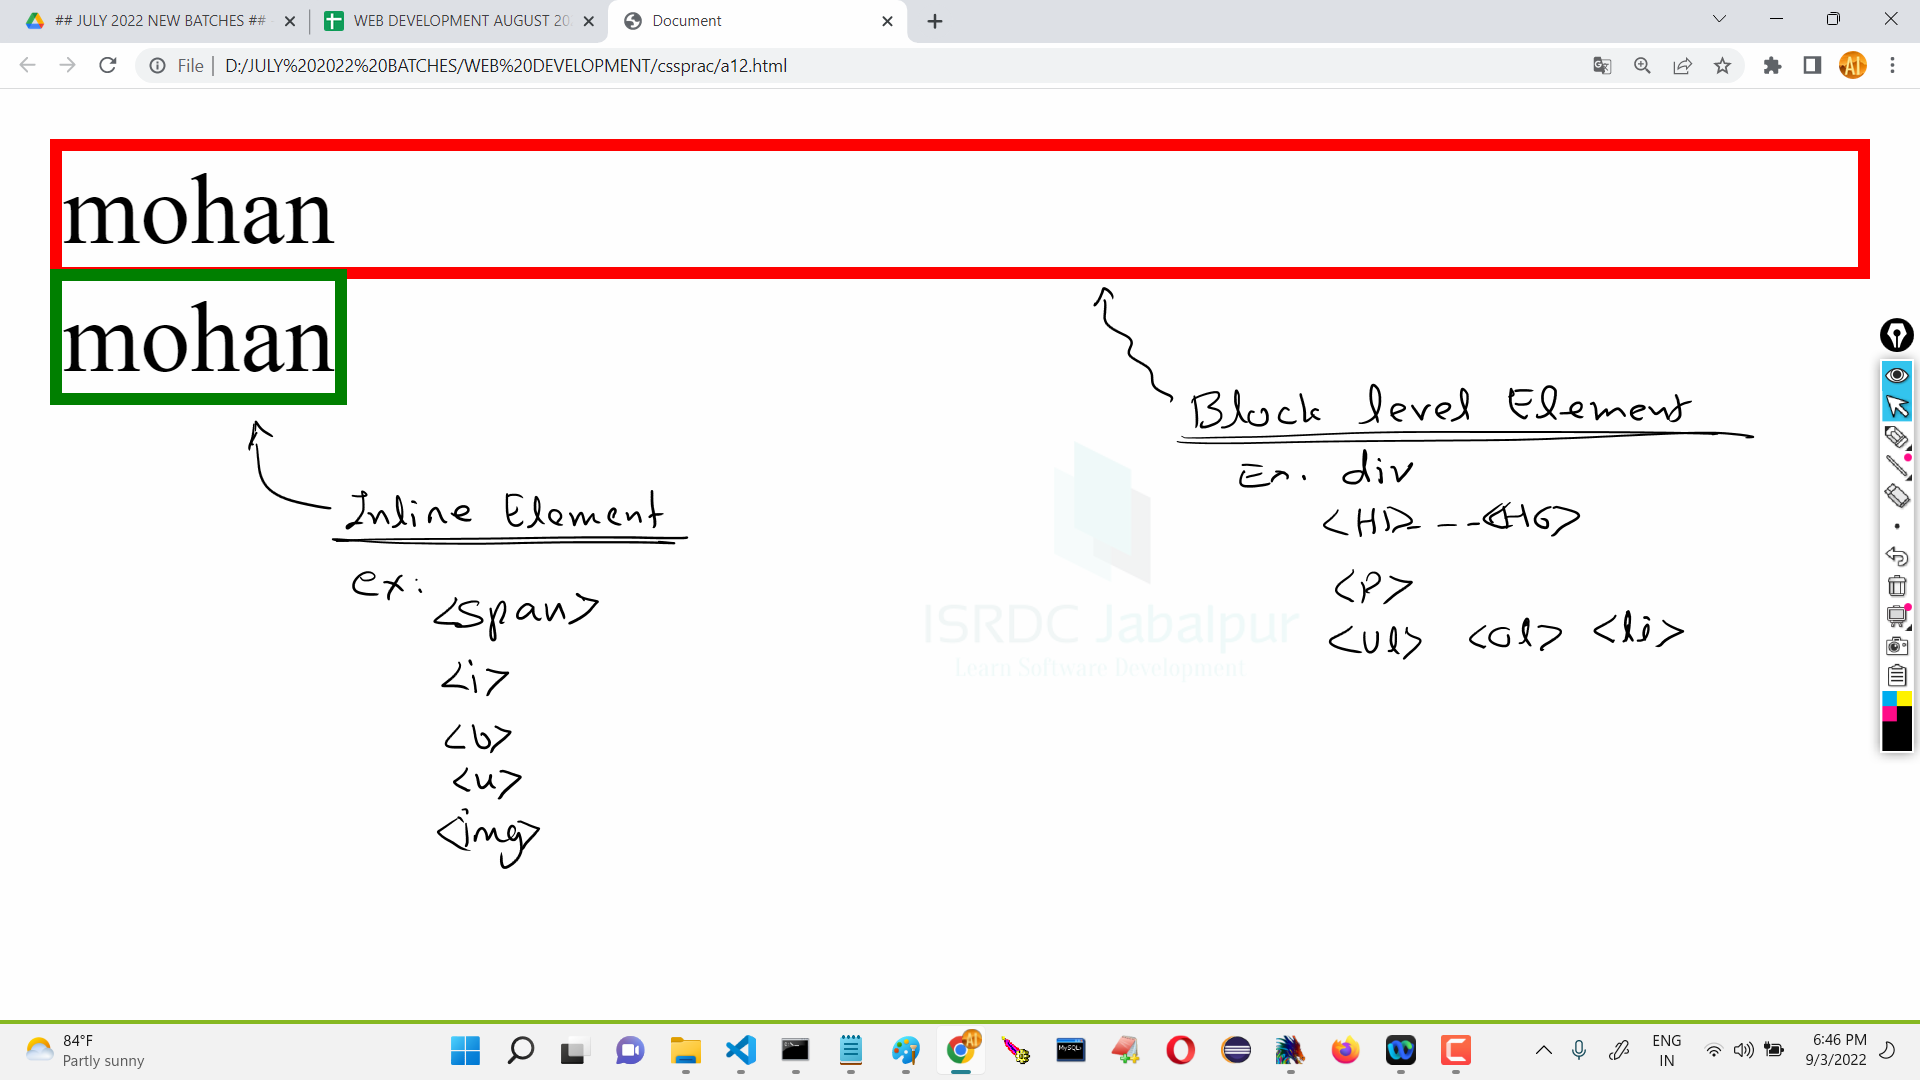 ## JULY 2022 NEW BATCHES ##
WEB DEVELOPMENT AUGUST 20
Document
File
D:/JULY%202022%20BATCHES/WEB%20DEVELOPMENT/cssprac/a12.html
mohan
mohan
Block level Element
Ex. div
<H1> - - <H6>
<P>
<Ul> <ol> <li>
Inline Element
ex:
<span>
<i>
<b>
<u>
<img>
ISRDC Jabalpur
Learn Software Development
84°F
Partly sunny
MySQL
ENG
IN
6:46 PM
9/3/2022